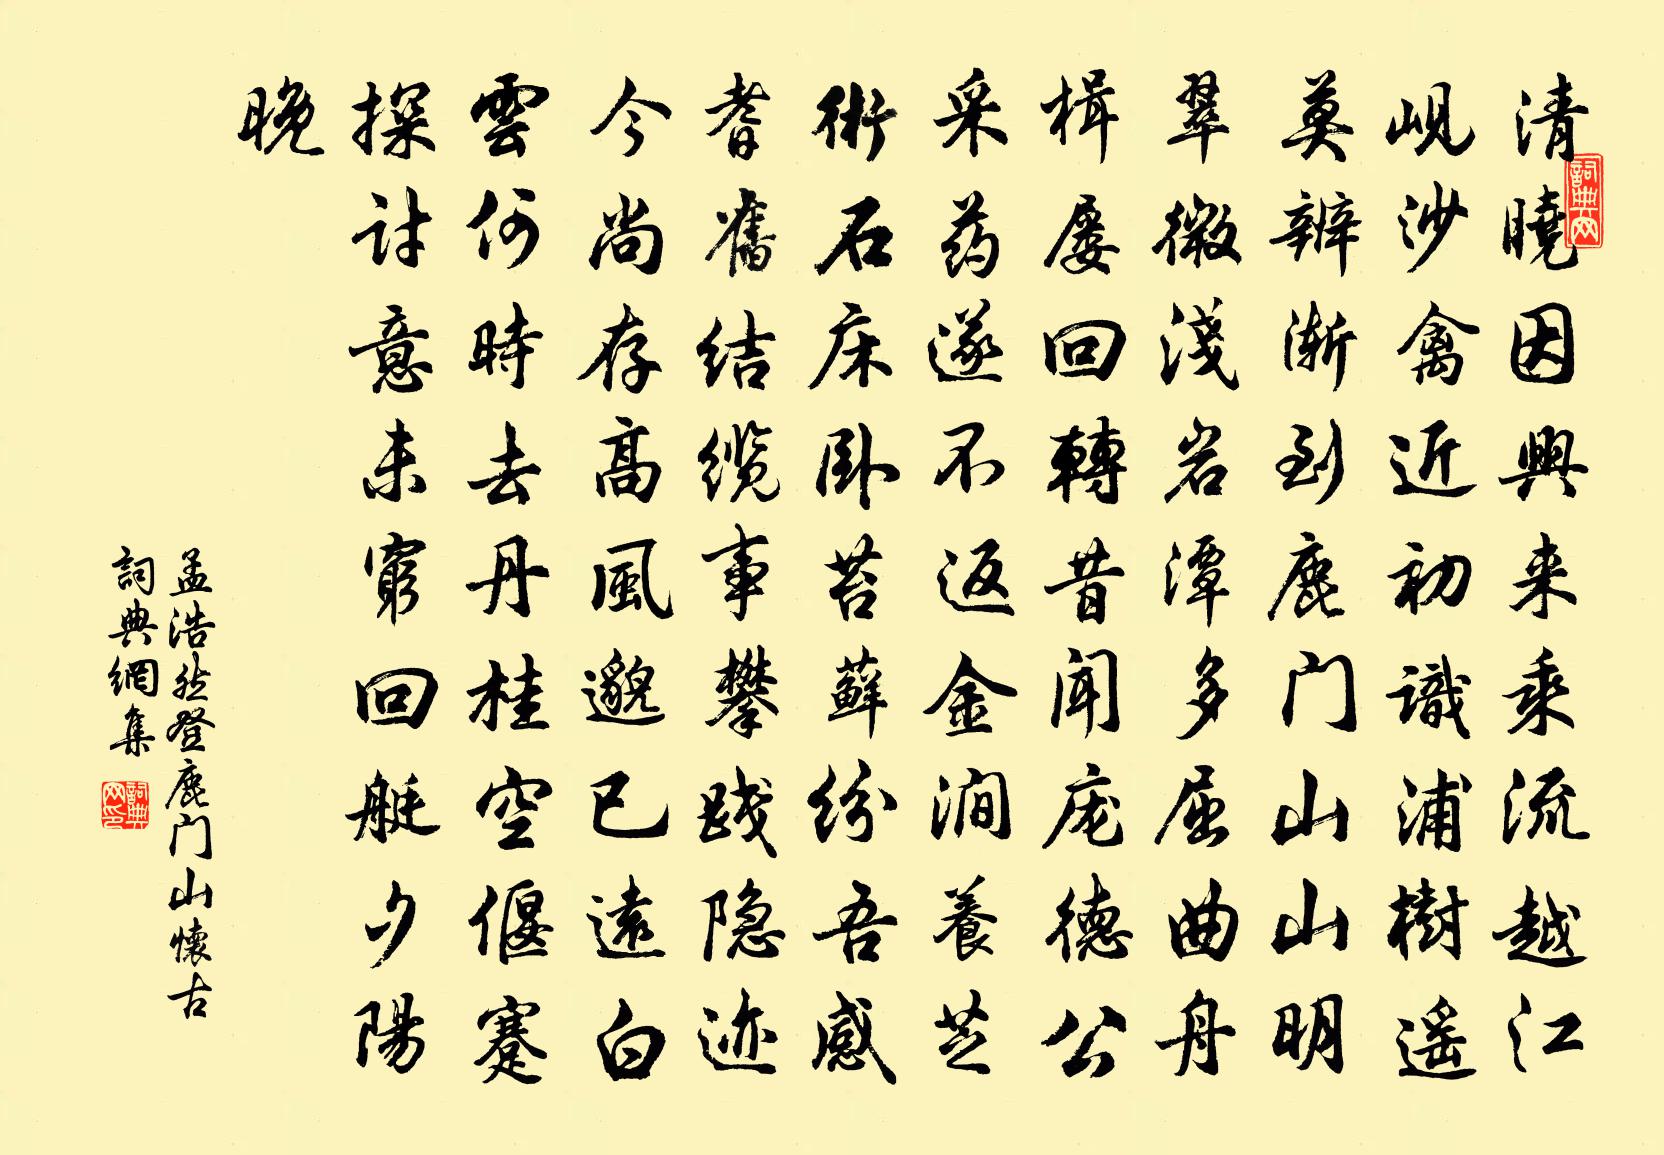 清曉因興来乘流越江
岘沙禽近初識浦樹遥
莫辨渐到鹿门山山明
翠微淺岩潭多屈曲舟
楫屡回轉昔闻庞德公
采药遂不返金涧養芝
術石床卧苔蘚纷吾感
耆舊结缆事攀践隐迹
今尚存高風邈已遠白
雲何時去丹桂空偃蹇
探討意未窮回艇夕陽
晚
孟浩然登鹿门山懷古
詞典網集
詞典网
詞典网印